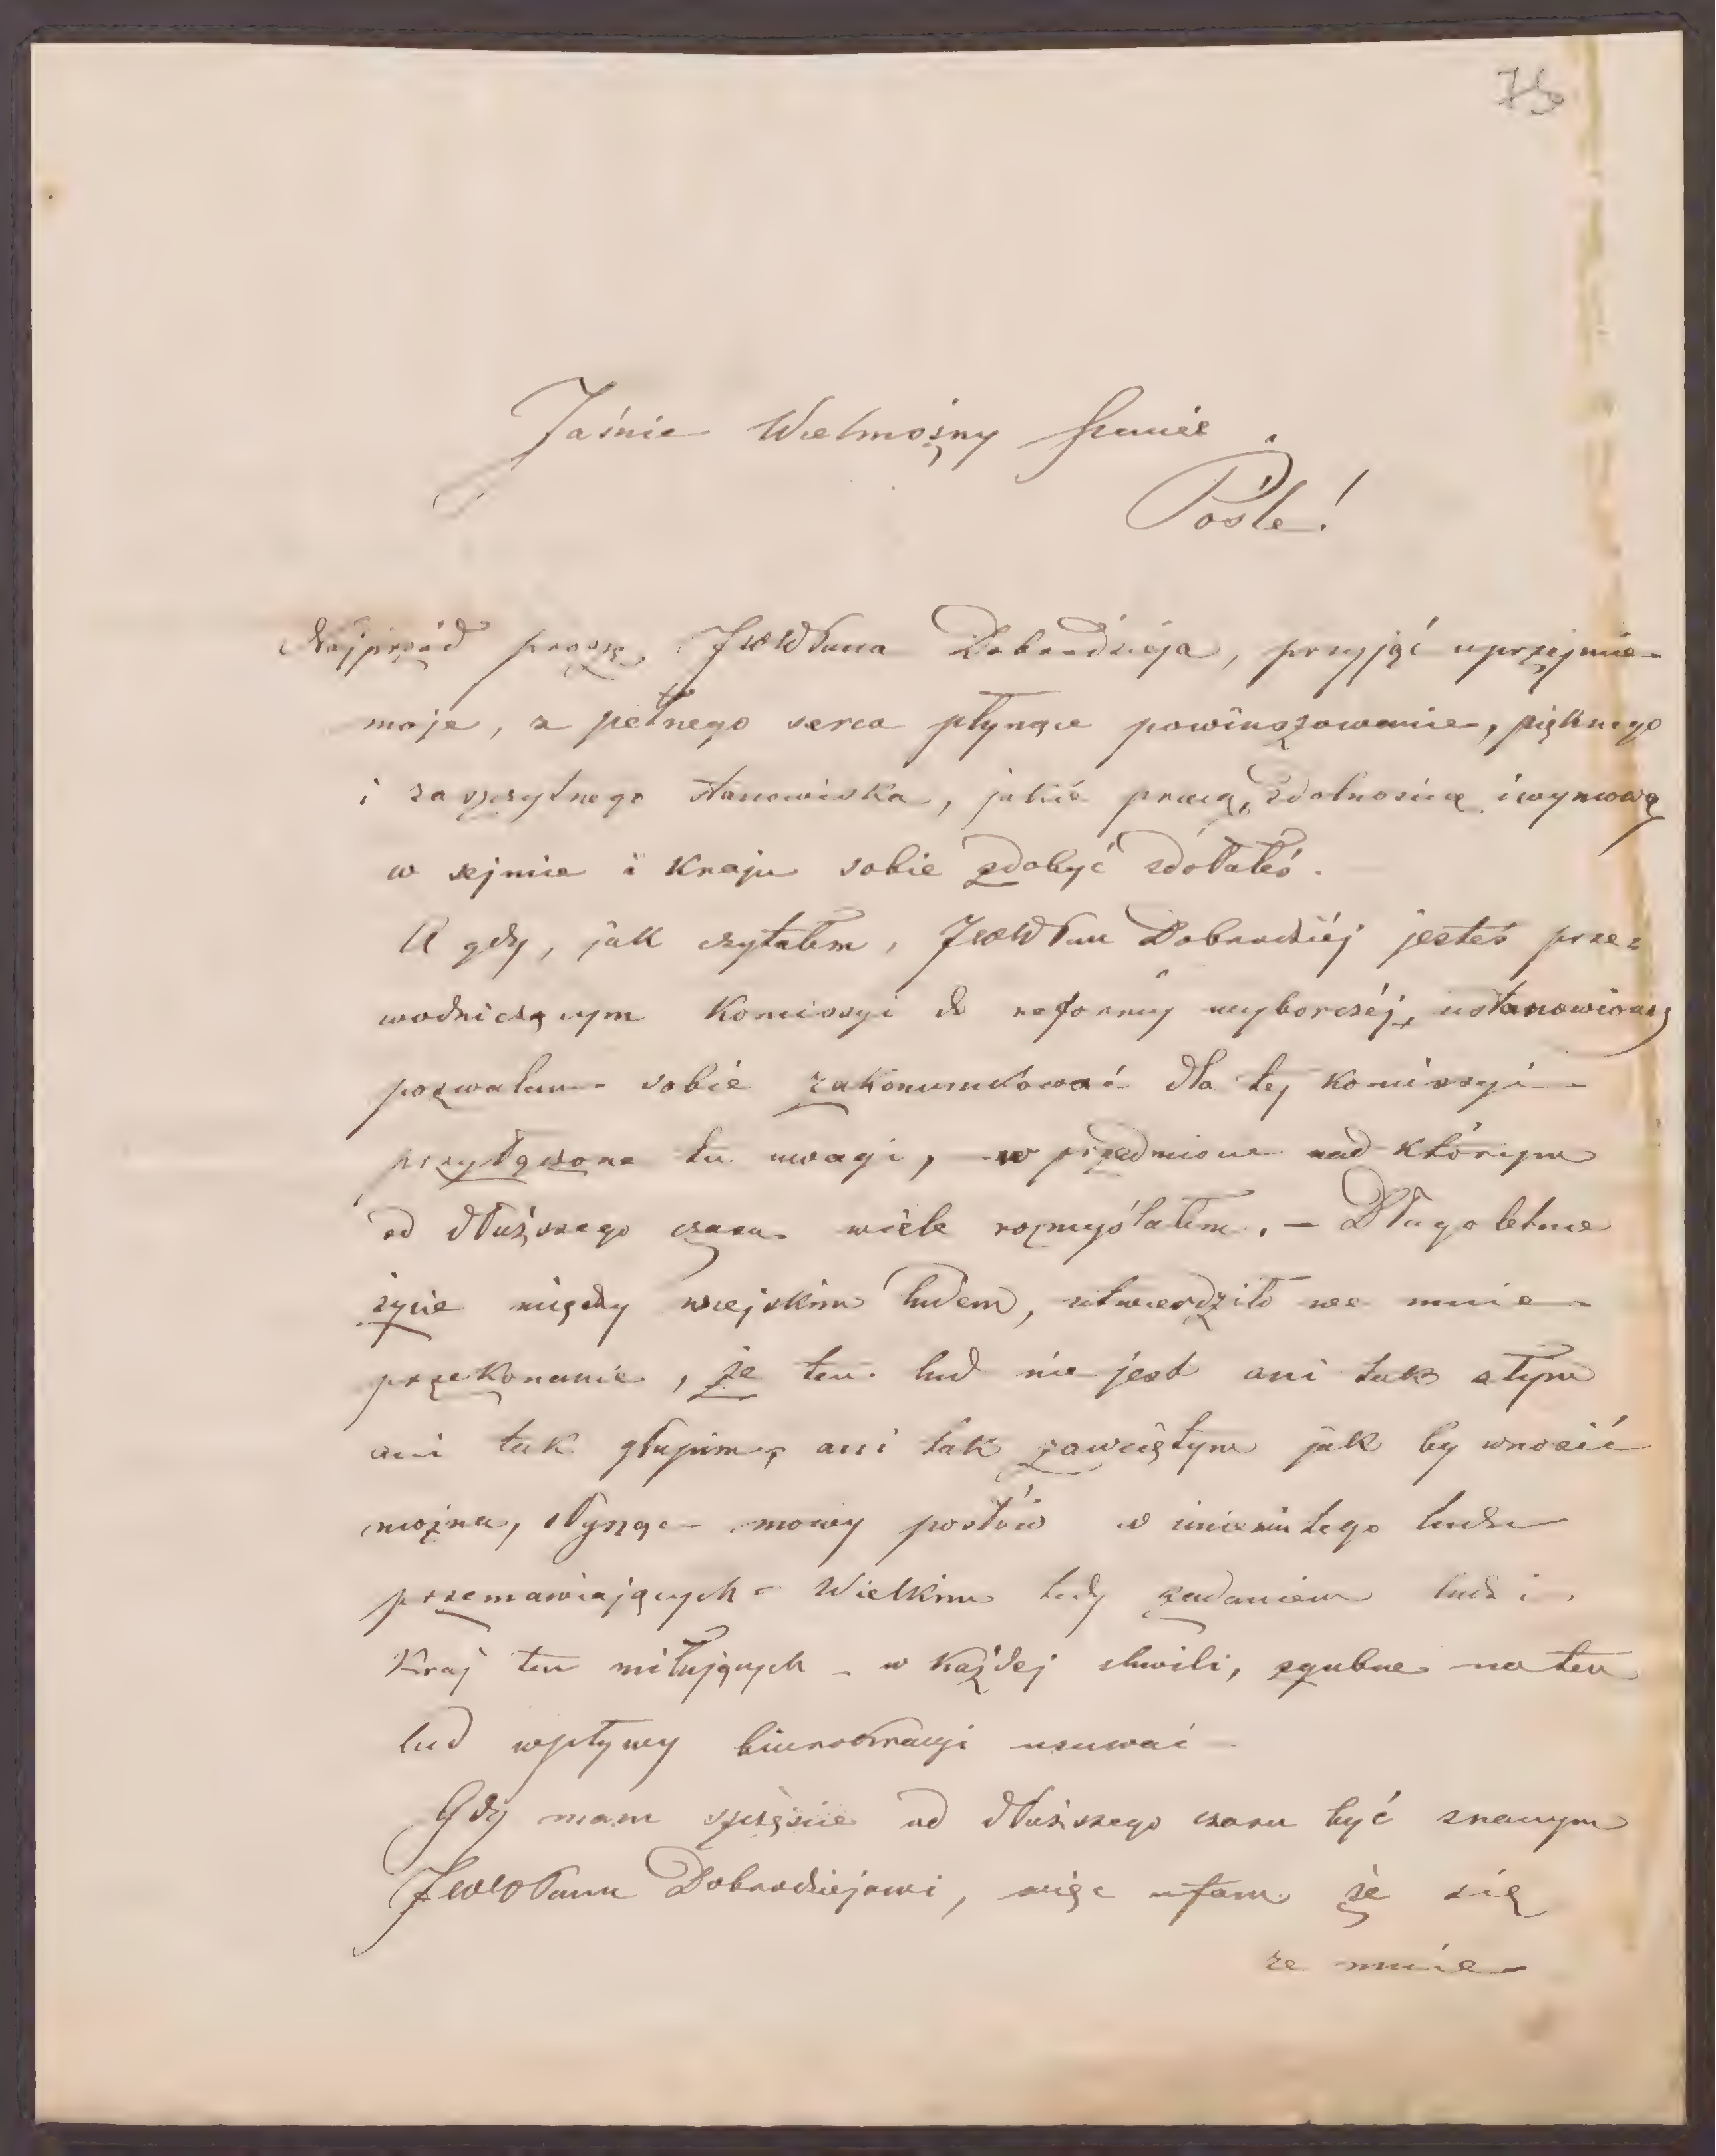 75
Jaśnie Wielmożny Panie
Pośle!
Najprzód proszę JWWPana Dobrodzieja, przyjąć uprzejmie
moje, z pełnego serca płynące powinszowanie, pięknego
i zaszczytnego stanowiska, jakie pracą, zdolnością i wymową
w sejmie i kraju sobie zdobyć zdołałeś.
A gdy, jak czytałem, JWWPan Dobrodziéj jesteś prze=
wodniczącym Komissyi do reformy wyborczéj,
pozwalam sobie zakomunikować dla tej komissyi
przyłączone tu uwagi, w przedmiocie nad którym
od dłuższego czasu wiele rozmyślałem. — Długoletnie
życie między wiejskim ludem, utwierdziło we mnie
przekonanie, że ten lud nie jest ani tak złym
ani tak głupim, ani tak zawziętym jak by wnosić
można, słysząc mowy posłów w imieniu tego ludu
przemawiających - Wielkim tedy zadaniem ludzi
Kraj ten miłujących - w każdej chwili, zgubne na ten
lud wpływy biurokracyi usuwać -
Gdy mam szczęście od dłuższego czasu być znanym
JWWPanu Dobrodziejowi, więc ufam że się
ze mnie